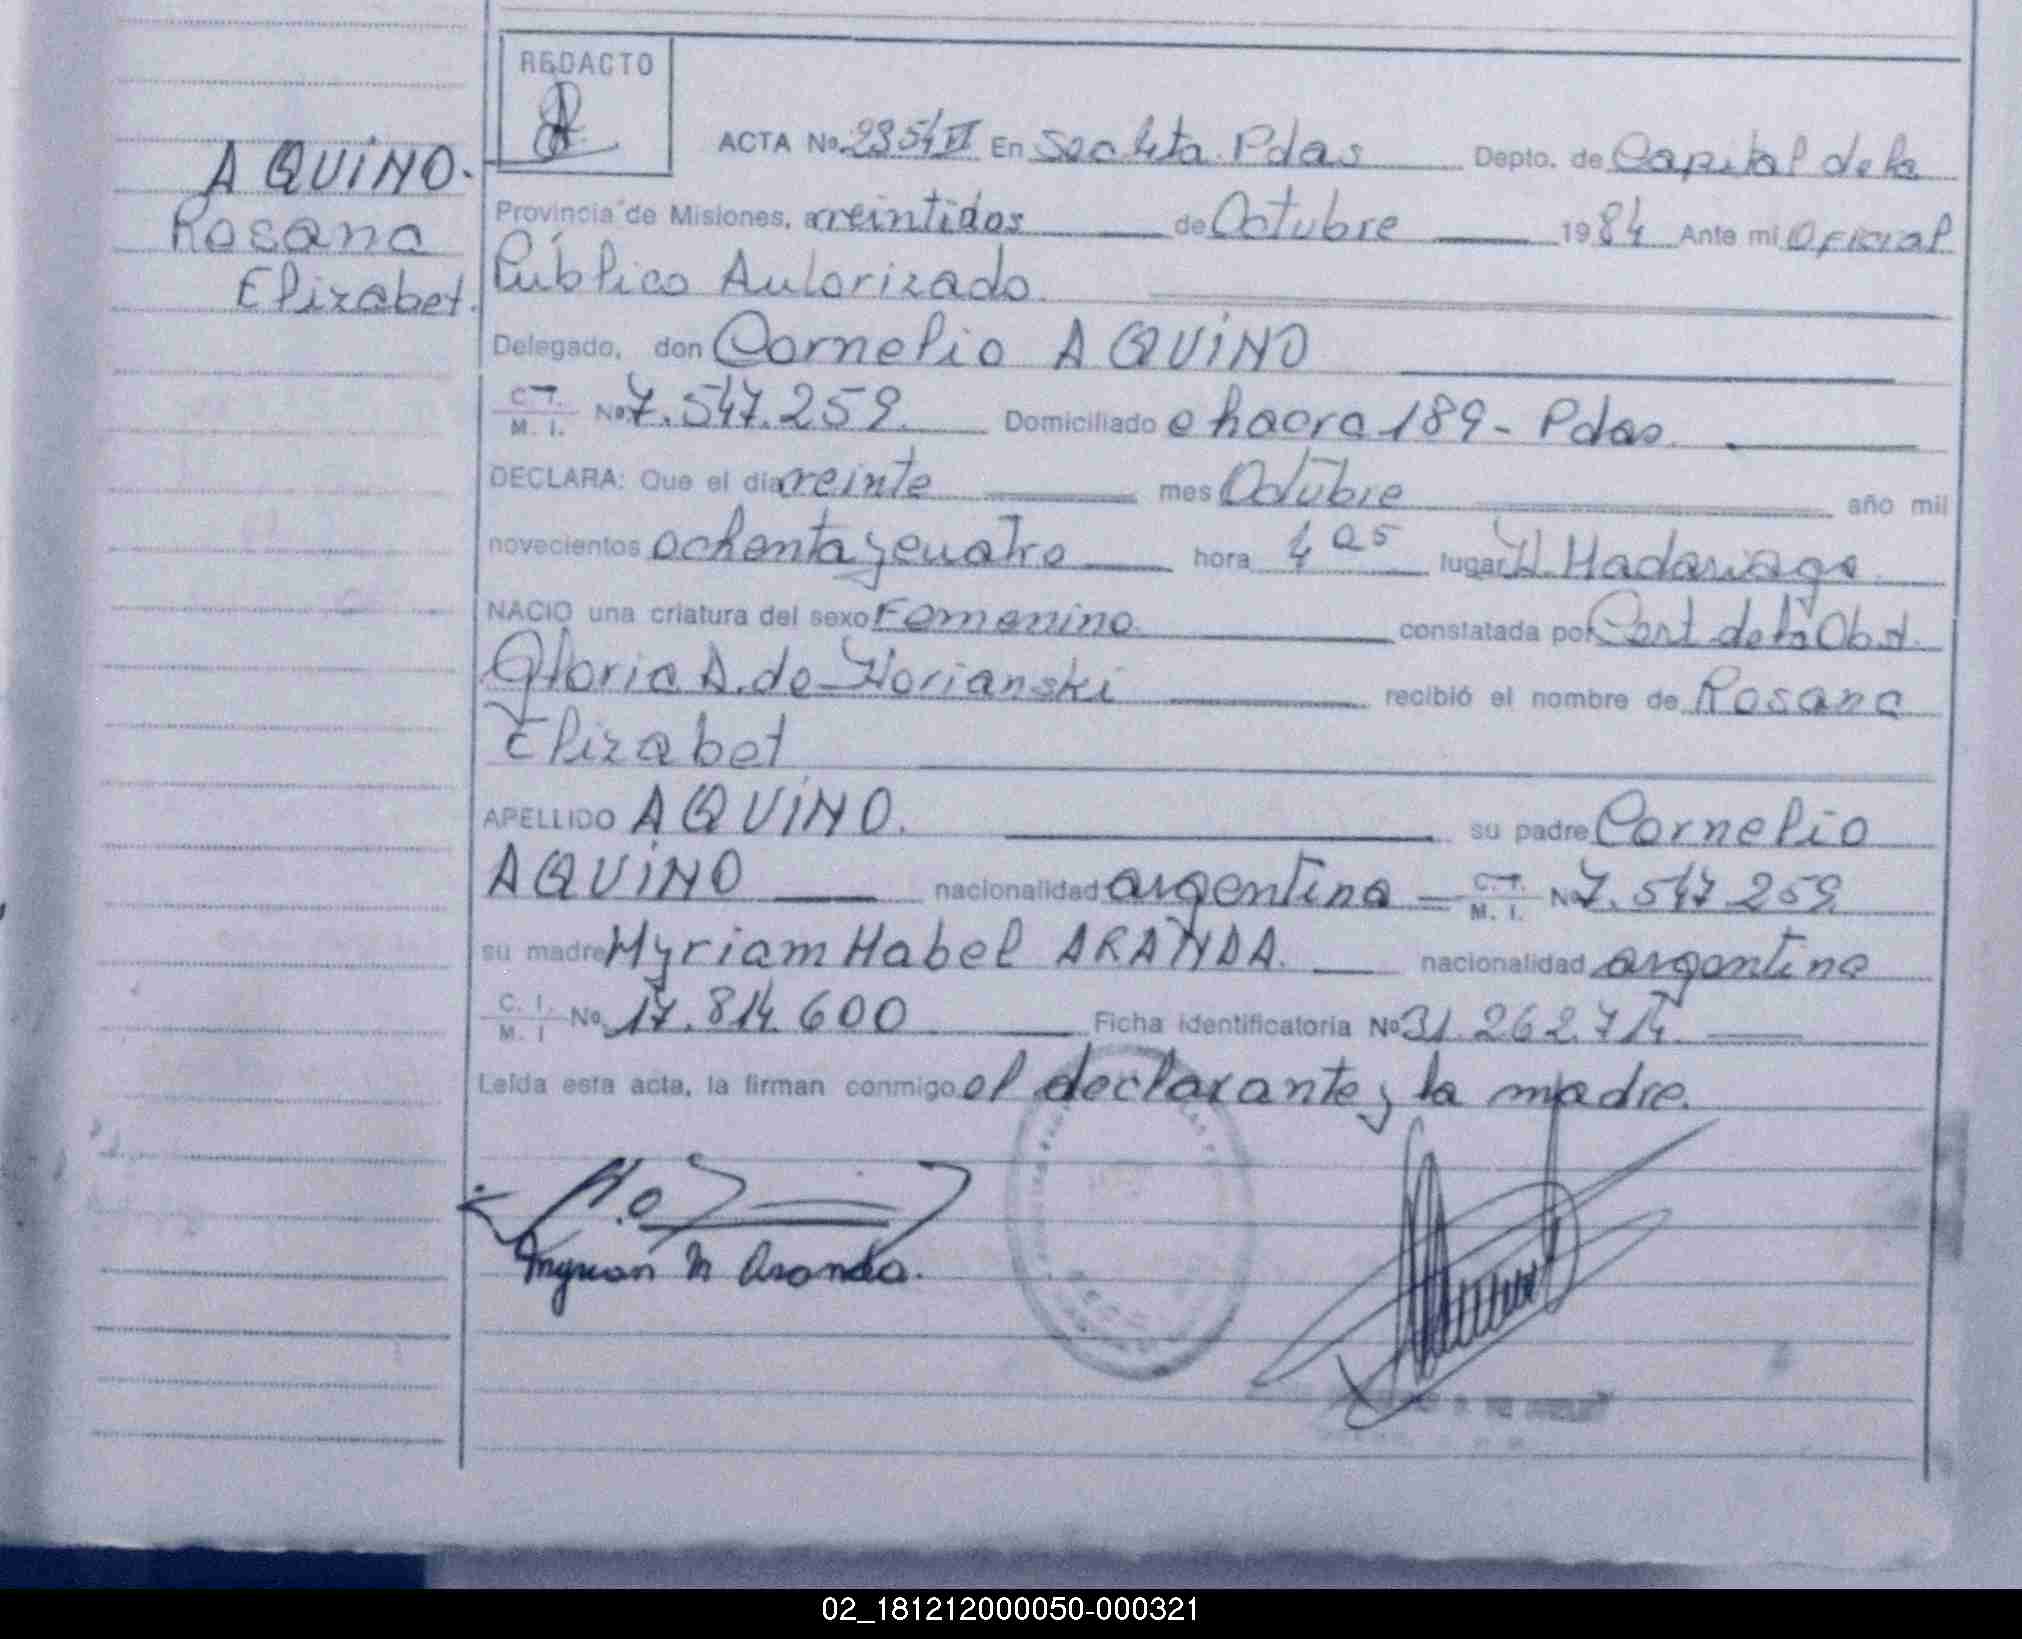 REDACTO
ACTA No. 2354 VI En Sec 4ta. Pdas Depto. de Capital de la
AQUINO. Rosana Elizabet.
Provincia de Misiones, a veintidos de Octubre 1984 Ante mi Oficial
Público Autorizado.
Delegado, don Cornelio AQUINO
C. I. M. I. No. 7.547.259. Domiciliado chacra 189 - Pdas.
DECLARA: Que el dia veinte mes Octubre año mil
novecientos ochenta y cuatro hora 4 05 lugar H. Madariaga
NACIO una criatura del sexo Femenino. constatada por Cert de la Obst.
Gloria A. de Horianski recibió el nombre de Rosana
Elizabet
APELLIDO AQUINO. su padre Cornelio
AQUINO nacionalidad argentina C. I. M. I. No 7.547.259.
su madre Myriam Mabel ARANDA. nacionalidad argentina
C. I. M. I No. 17.814.600 Ficha identificatoria No 31.262.714.
Leída esta acta, la firman conmigo el declarante y la madre.
Myrian M Aranda.
02_181212000050-000321